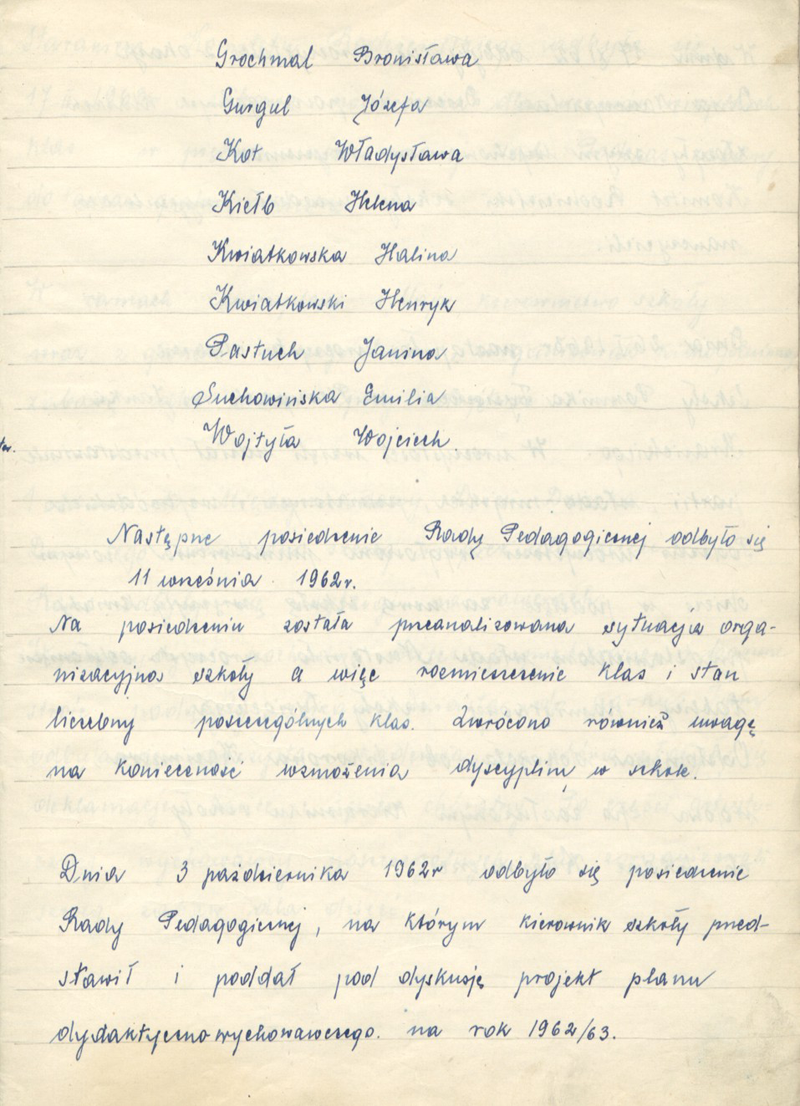 Grochmal Bronisława
Gurgul Józefa
Kot Władysława
Kiełb Helena
Kwiatkowska Halina
Kwiatkowski Henryk
Pastuch Janina
Suchowińska Emilia
Wojtyła Wojciech.
Następne posiedzenie Rady Pedagogicznej odbyło się
11 września 1962r.
Na posiedzeniu została przeanalizowana sytuacja orga-
nizacyjna szkoły a więc rozmieszczenie klas i stan
liczebny poszczególnych klas. Zwrócono również uwagę
na konieczność wzmożenia dyscypliny w szkole.
Dnia 3 października 1962r odbyło się posiedzenie
Rady Pedagogicznej, na którym kierownik szkoły przed-
stawił i poddał pod dyskusję projekt planu
dydaktycznowychowawczego. na rok 1962/63.